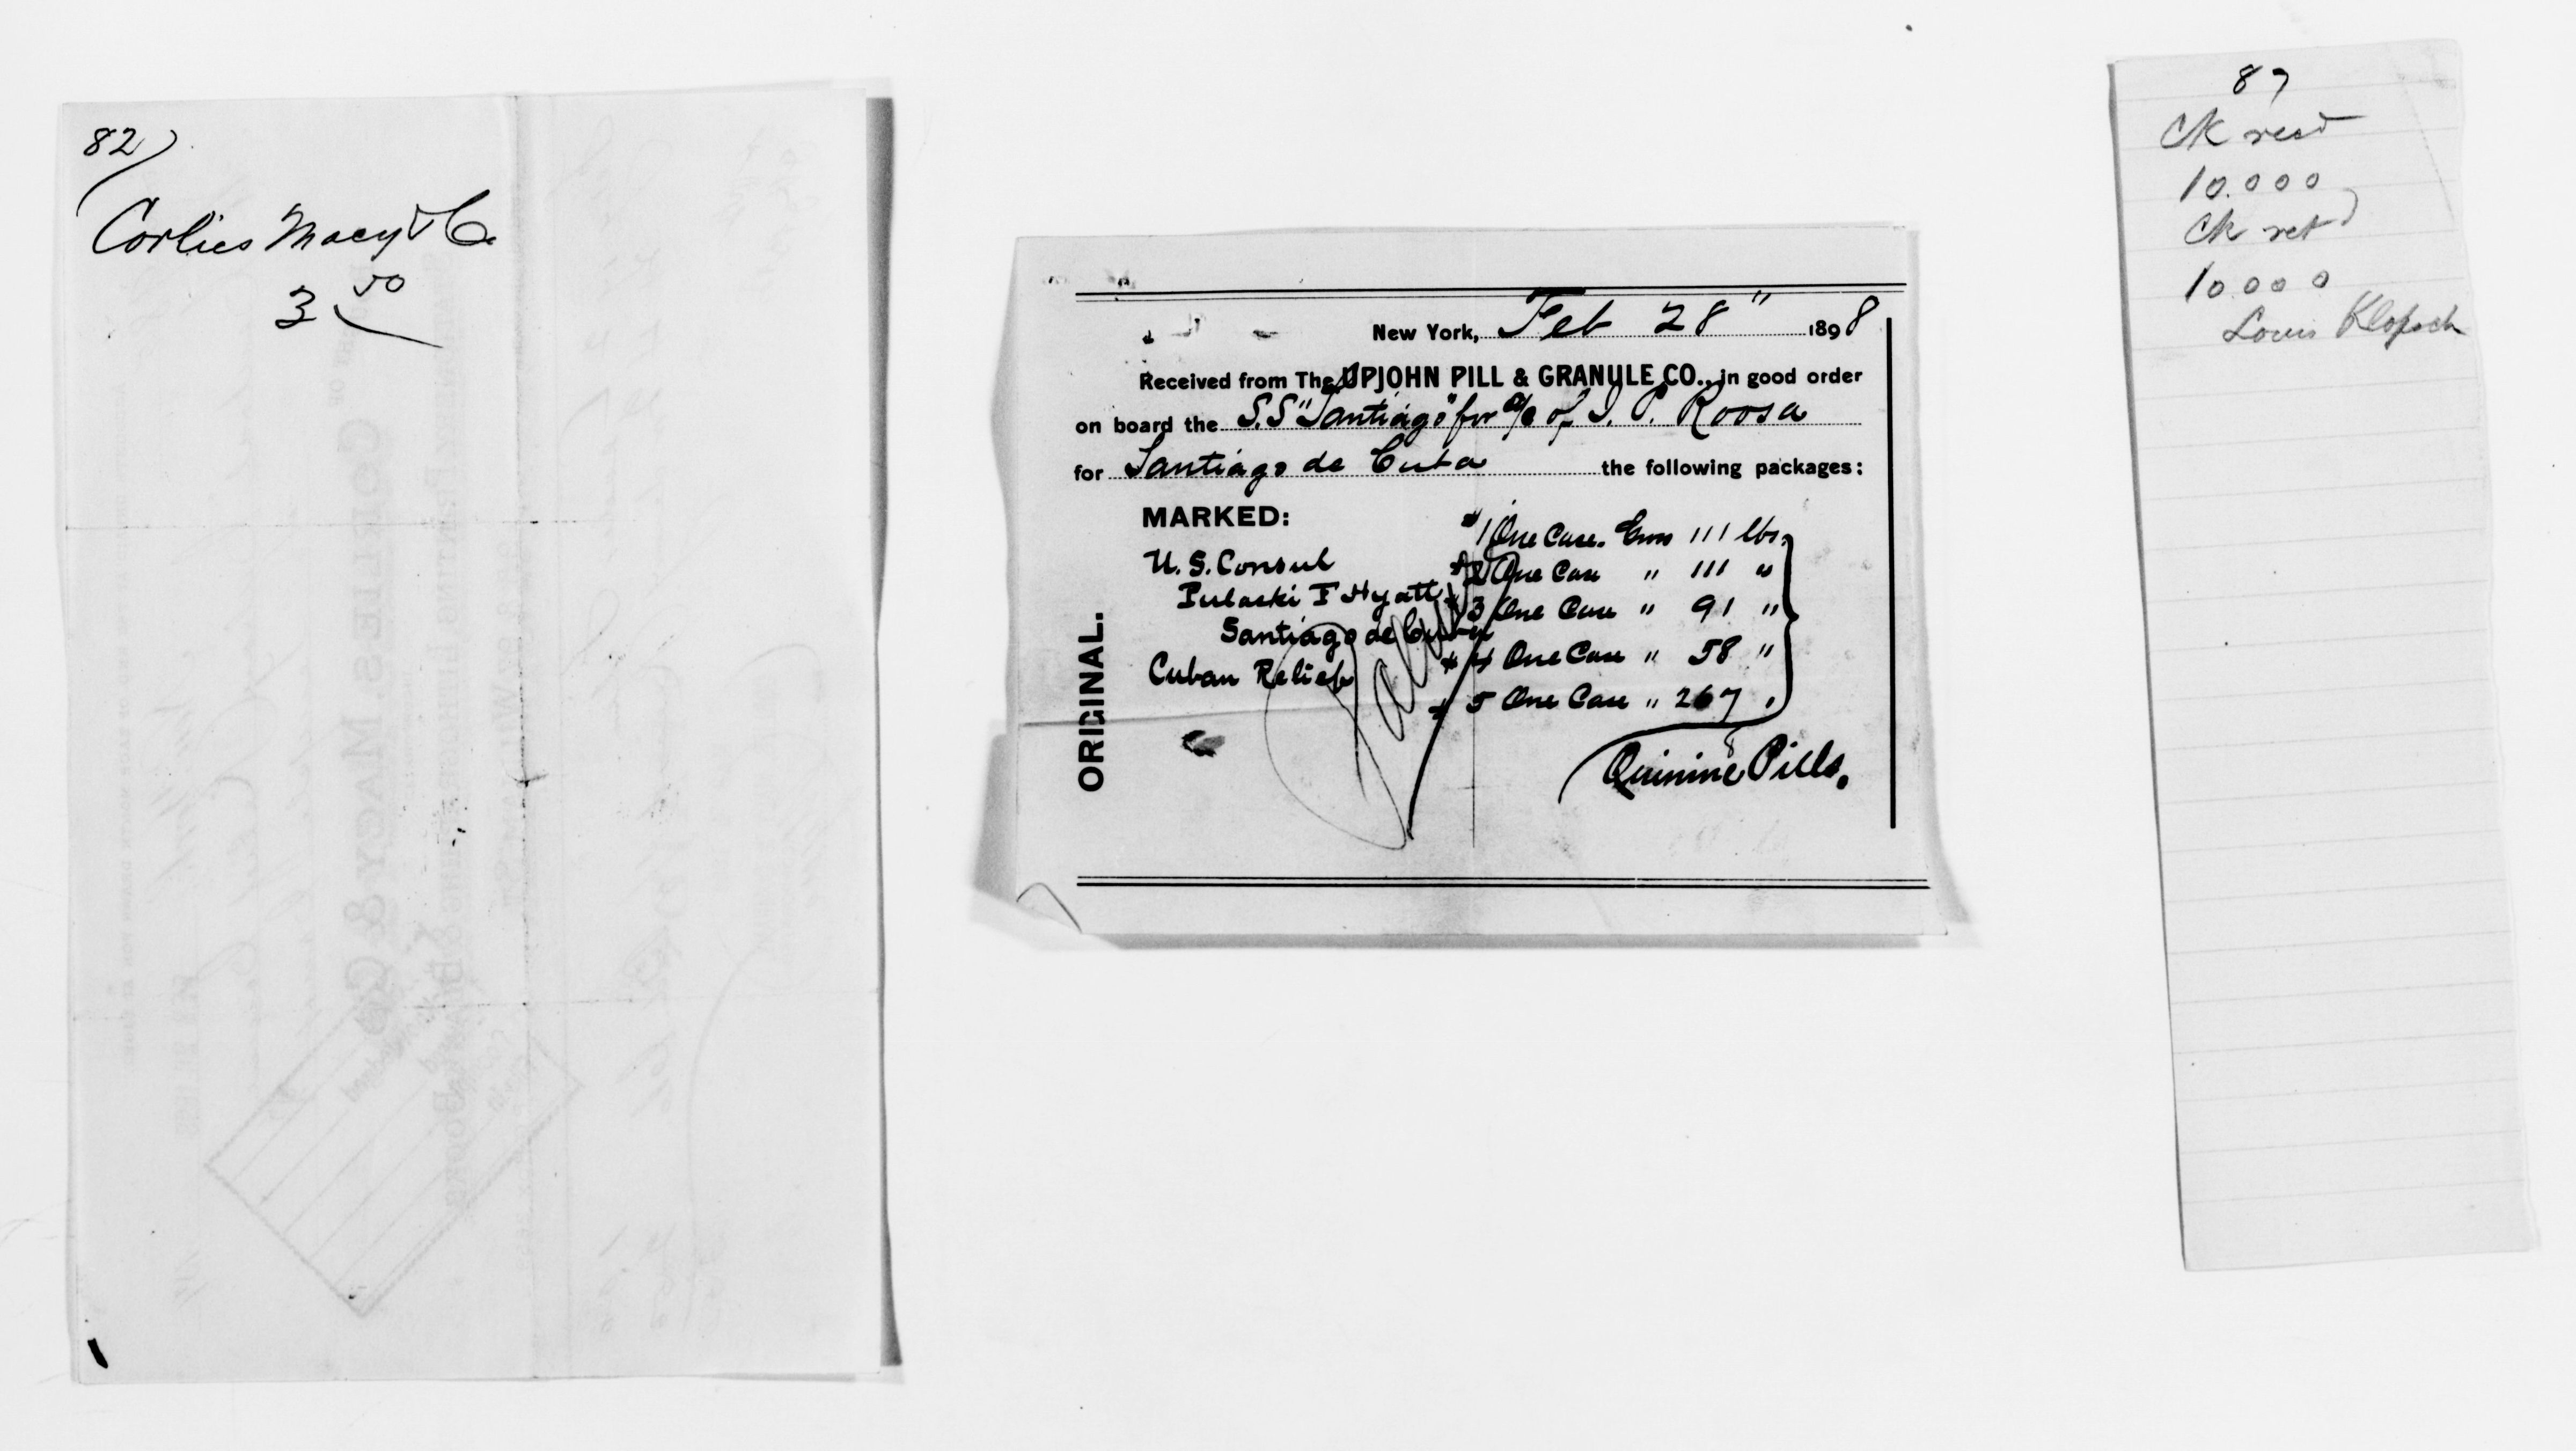 82)
Corlies Macy & Co.
3 50
New York, Feb 28" 1898
Received from The UPJOHN PILL & GRANULE CO., in good order
on board the S.S "Santiago" for a/c of I. P. Roosa
for Santiago de Cuba the following packages:
ORIGINAL.
MARKED:
U. S. Consul
Pulaski F Hyatt
Santiago de Cuba
Cuban Relief
#1 One Case. 111 lbs.
#2 One Case " 111 "
#3 One Case " 91 "
#4 One Case " 58 "
#5 One Case " 267 "
Quinine Pills.
87
Ck recd
10.000
Ck retd
10000
Louis Klopsch